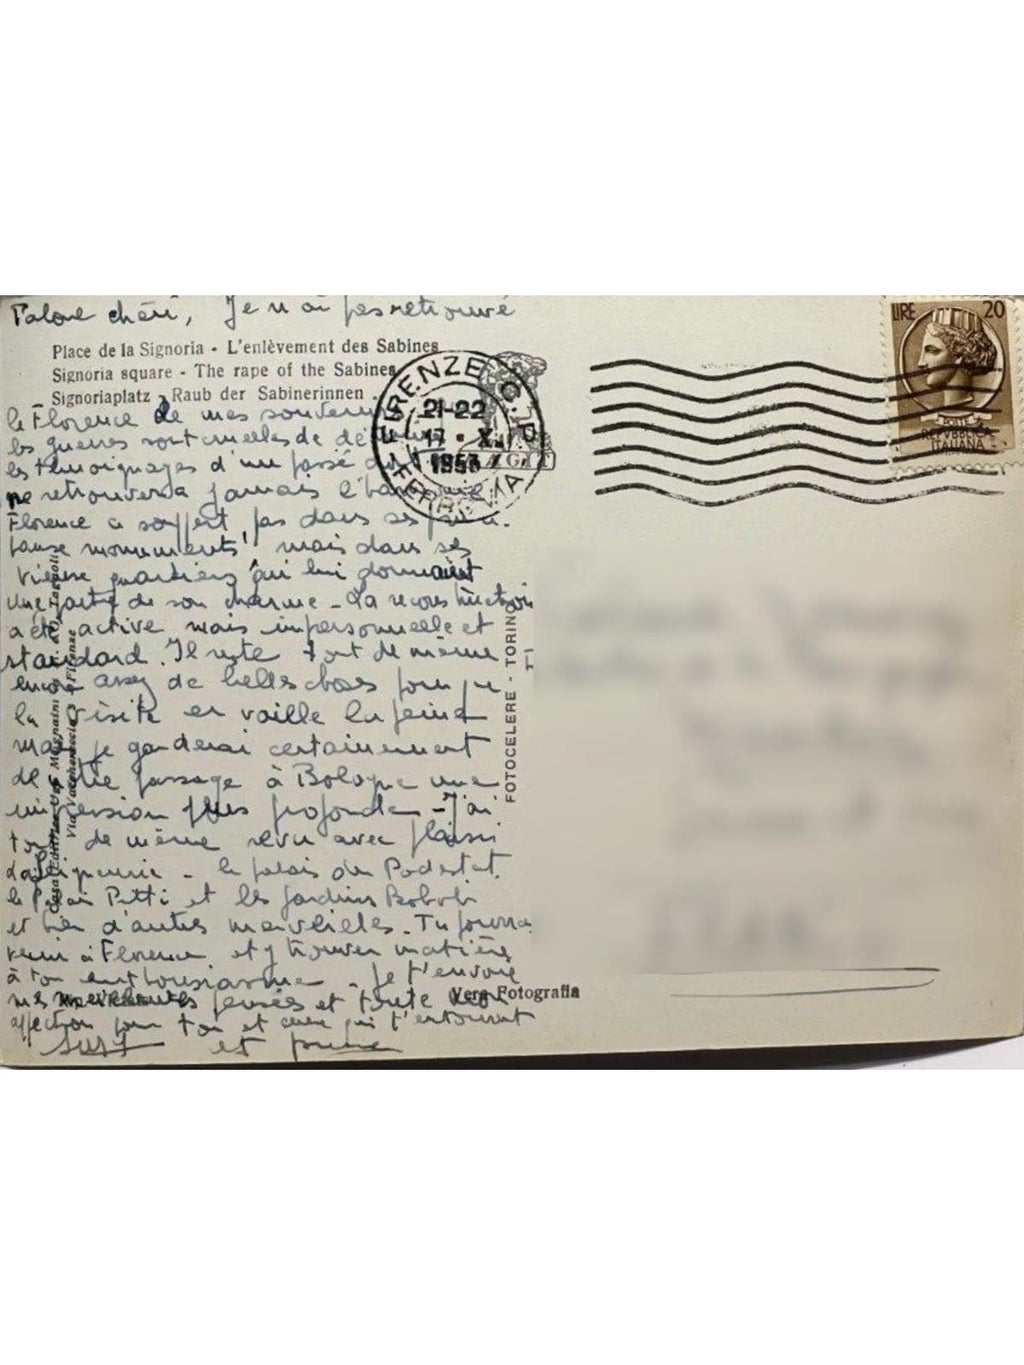 chéri, Je n'ai pas retrouvé
Place de la Signoria - L'enlèvement des Sabines
Signoria square - The rape of the Sabines
Signoriaplatz - Raub der Sabinerinnen
la Florence de mes souvenirs
les guerres sont cruelles de
les témoignages d'un passé
ne retrouvera jamais
Florence a souffert pas dans ses
monuments mais dans ses
vieux quartiers qui lui donnaient
une partie de son charme - La reconstruction
a été active mais impersonnelle et
standard. Il reste tout de même
encore assez de belles choses pour que
la visite en vaille la peine
mais je garderai certainement
de passage à Bologne une
impression plus profonde - J'ai
tout de même revu avec plaisir
la Signoria - le palais du Podestat
le Palais Pitti et les jardins Boboli
et bien d'autres merveilles. Tu pourras
venir à Florence et y trouver matière
à ton enthousiasme - Je t'envoie
mes pensées et toute mon
affection pour toi et ceux qui t'entourent
et
FOTOCELERE - TORINO
Vera Fotografia
FIRENZE
21-22
17 · X
LIRE 20
ITALIANA